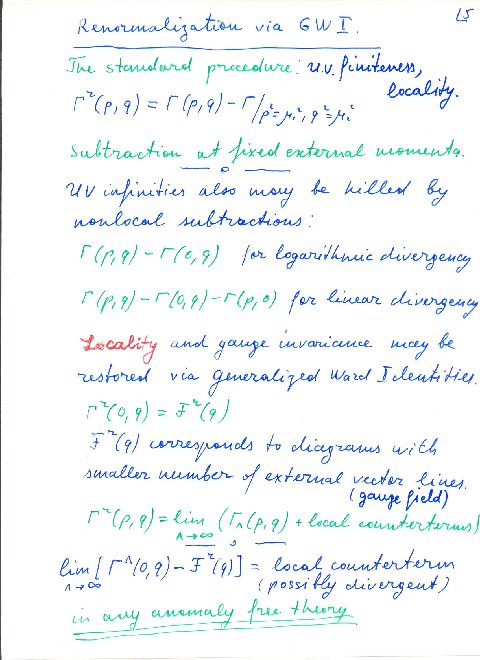 15
Renormalization via GW I.
The standard procedure: u.v. finiteness,
locality.
Γʳ(p,q) = Γ(p,q) − Γ/p²=μ₁², q²=μ₂²
Subtraction at fixed external momenta.
UV infinities also may be killed by
nonlocal subtractions:
Γ(p,q) − Γ(0,q) for logarithmic divergency
Γ(p,q) − Γ(0,q) − Γ(p,0) for linear divergency
Locality and gauge invariance may be
restored via generalized Ward Identities.
Γʳ(0,q) = Fʳ(q)
Fʳ(q) corresponds to diagrams with
smaller number of external vector lines.
(gauge field)
Γʳ(p,q) = lim Λ→∞ (ΓΛ(p,q) + local counterterms)
lim Λ→∞ [Γ^Λ(0,q) − Fʳ(q)] = local counterterm
(possibly divergent)
in any anomaly free theory